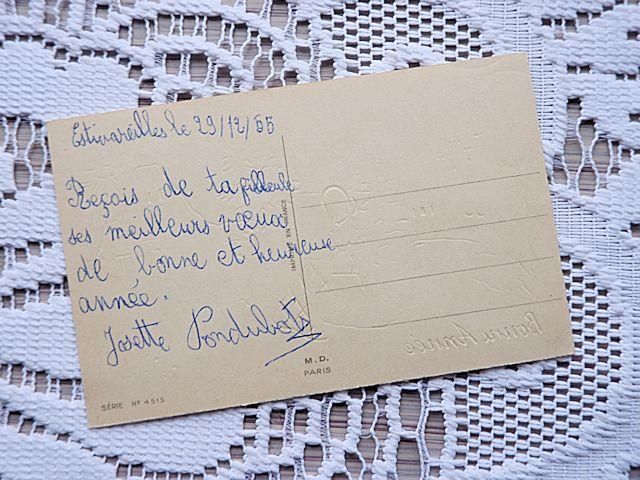 Estivareilles le 29/12/65
Reçois de ta filleule
ses meilleurs vœux
de bonne et heureuse
année.
Josette
IMPRIMÉ EN FRANCE
M.D.
PARIS
SÉRIE Nº 4515
Bonne Année